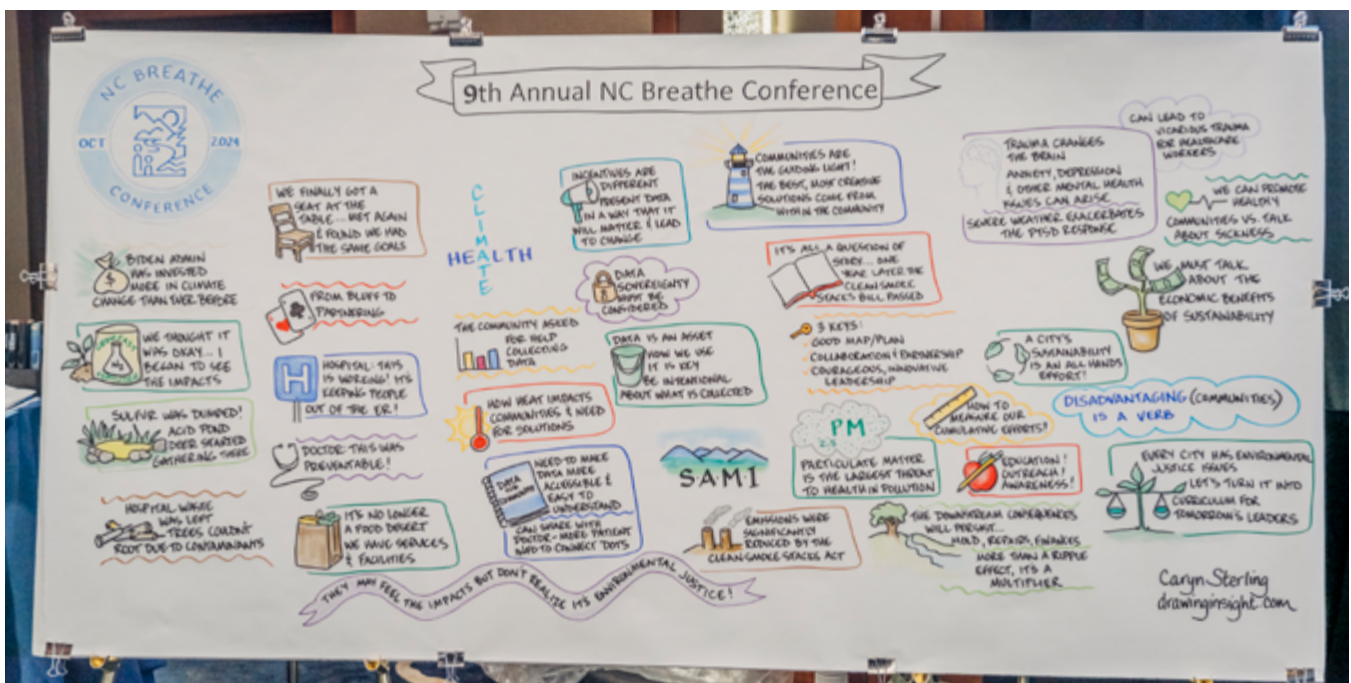 9th Annual NC Breathe Conference
NC BREATHE
OCT 2024
CONFERENCE
BIDEN ADMIN
HAS INVESTED
MORE IN CLIMATE
CHANGE THAN EVER BEFORE
WE THOUGHT IT
WAS OKAY... I
BEGAN TO SEE
THE IMPACTS
SULFUR WAS DUMPED!
ACID POND
DEER STARTED
GATHERING THERE
HOSPITAL WASTE
WAS LEFT
TREES COULDN'T
ROOT DUE TO CONTAMINANTS
WE FINALLY GOT A
SEAT AT THE
TABLE... MET AGAIN
& FOUND WE HAD
THE SAME GOALS
FROM BLUFF TO
PARTNERING
H
HOSPITAL: THIS
IS WORKING! IT'S
KEEPING PEOPLE
OUT OF THE ER!
DOCTOR: THIS WAS
PREVENTABLE!
IT'S NO LONGER
A FOOD DESERT
WE HAVE SERVICES
& FACILITIES
CLIMATE
HEALTH
THE COMMUNITY ASKED
FOR HELP
COLLECTING
DATA
HOW HEAT IMPACTS
COMMUNITIES & NEED
FOR SOLUTIONS
DATA
FOR
COMMUNITY
NEED TO MAKE
DATA MORE
ACCESSIBLE &
EASY TO
UNDERSTAND
CAN SHARE WITH
DOCTOR - MORE PATIENT
INFO TO CONNECT DOTS
THEY MAY FEEL THE IMPACTS BUT DON'T REALIZE IT'S ENVIRONMENTAL JUSTICE!
INCENTIVES ARE
DIFFERENT
PRESENT DATA
IN A WAY THAT IT
WILL MATTER & LEAD
TO CHANGE
DATA
SOVEREIGNTY
MUST BE
CONSIDERED
DATA IS AN ASSET
HOW WE USE
IT IS KEY
BE INTENTIONAL
ABOUT WHAT IS COLLECTED
SAMI
EMISSIONS WERE
SIGNIFICANTLY
REDUCED BY THE
CLEAN SMOKE STACKS ACT
COMMUNITIES ARE
THE GUIDING LIGHT!
THE BEST, MOST CREATIVE
SOLUTIONS COME FROM
WITHIN THE COMMUNITY
IT'S ALL A QUESTION OF
STORY... ONE
YEAR LATER THE
CLEAN SMOKE
STACKS BILL PASSED
3 KEYS:
GOOD MAP/PLAN
COLLABORATION & PARTNERSHIP
COURAGEOUS, INNOVATIVE
LEADERSHIP
PM
2.5
PARTICULATE MATTER
IS THE LARGEST THREAT
TO HEALTH IN POLLUTION
HOW TO
MEASURE OUR
CUMULATIVE EFFORTS?
EDUCATION!
OUTREACH!
AWARENESS!
THE DOWNSTREAM CONSEQUENCES
WILL PERSIST...
MOLD, REPAIRS, FINANCES
MORE THAN A RIPPLE
EFFECT, IT'S A
MULTIPLIER
TRAUMA CHANGES
THE BRAIN
ANXIETY, DEPRESSION
& OTHER MENTAL HEALTH
ISSUES CAN ARISE
SEVERE WEATHER EXACERBATES
THE PTSD RESPONSE
CAN LEAD TO
VICARIOUS TRAUMA
FOR HEALTHCARE
WORKERS
WE CAN PROMOTE
HEALTHY
COMMUNITIES VS. TALK
ABOUT SICKNESS
WE MUST TALK
ABOUT THE
ECONOMIC BENEFITS
OF SUSTAINABILITY
A CITY'S
SUSTAINABILITY
IS AN ALL HANDS
EFFORT!
DISADVANTAGING (COMMUNITIES)
IS A VERB
EVERY CITY HAS ENVIRONMENTAL
JUSTICE ISSUES
LET'S TURN IT INTO
CURRICULUM FOR
TOMORROW'S LEADERS
Caryn Sterling
drawinginsight.com